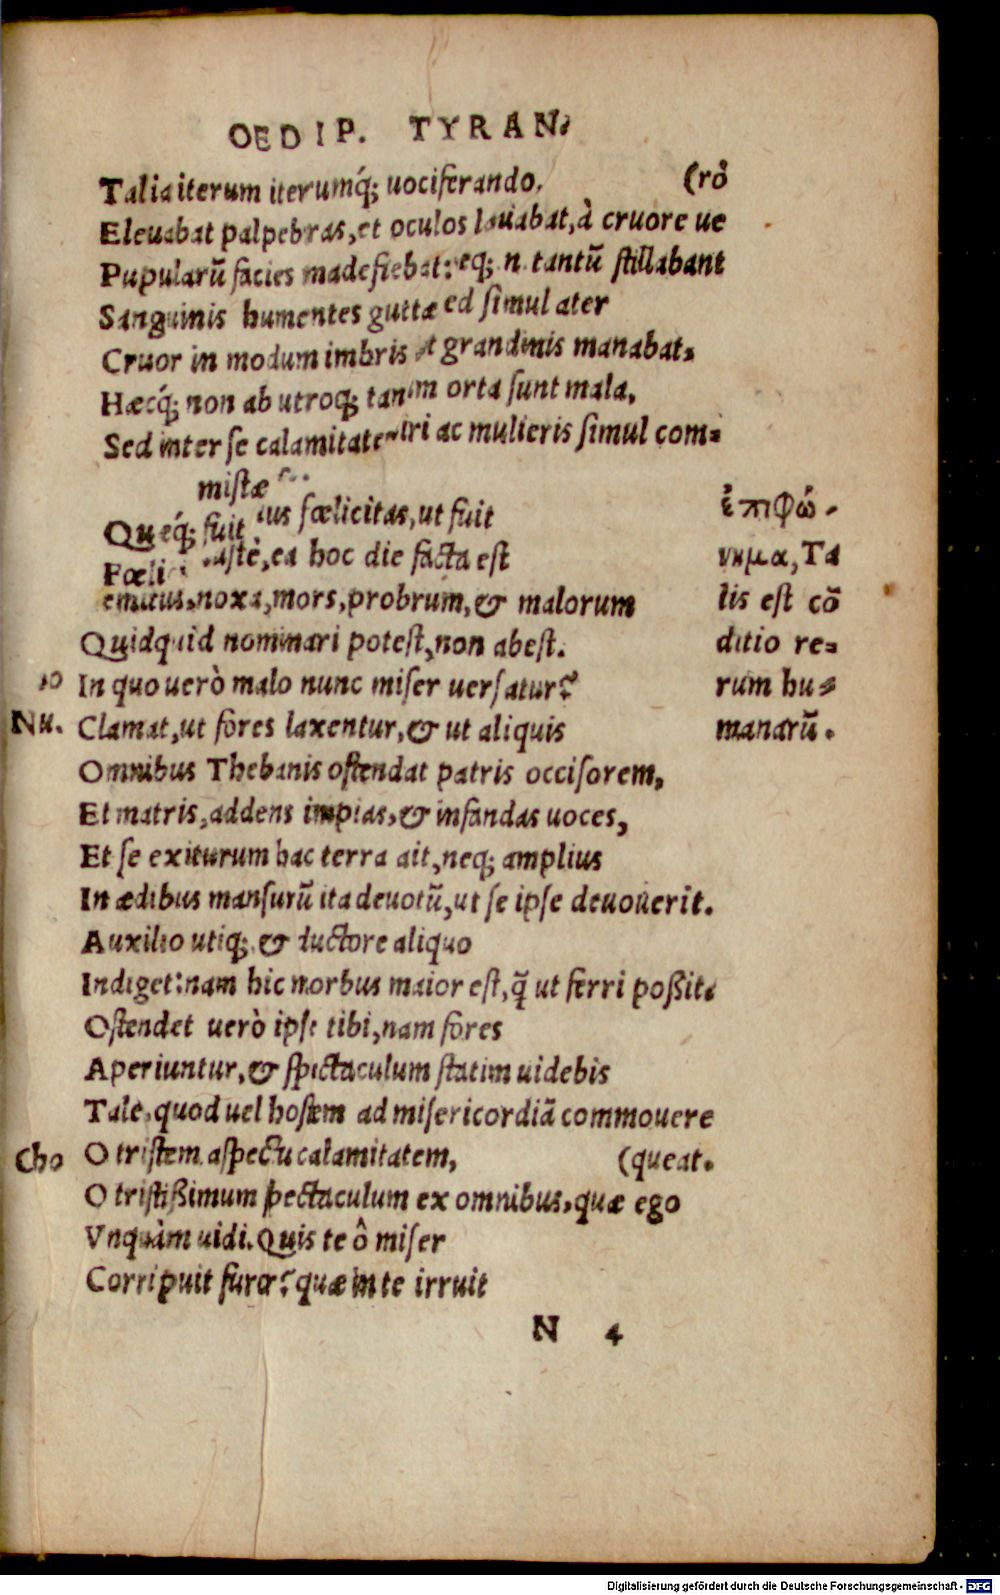 OEDIP. TYRAN.
Talia iterum iterumq́; uociferando. (rò
Eleuabat palpebras, et oculos lauabat, à cruore ue
Pupularũ facies madefiebat: eq; n. tantũ stillabant
Sanguinis humentes guttæ ed simul ater
Cruor in modum imbris et grandinis manabat.
Hæcq́; non ab utroq; orta sunt mala,
Sed inter se calamitate iri ac mulieris simul com-
mistæ
Quæq́; fuit ius fœlicitas, ut fuit
Fœli iuste, ea hoc die facta est
emitus, noxa, mors, probrum, & malorum
Quidquid nominari potest, non abest.
io In quo uerò malo nunc miser uersatur?
Nu. Clamat, ut fores laxentur, & ut aliquis
Omnibus Thebanis ostendat patris occisorem,
Et matris, addens impias, & infandas uoces,
Et se exiturum hac terra ait, neq; amplius
In ædibus mansurũ ita deuotũ, ut se ipse deuouerit.
Auxilio utiq; & ductore aliquo
Indiget: nam hic morbus maior est, q̃ ut ferri poßit.
Ostendet uerò ipse tibi, nam fores
Aperiuntur, & spectaculum statim uidebis
Tale, quod uel hostem ad misericordiã commouere
Cho O tristem aspectu calamitatem, (queat.
O tristißimum spectaculum ex omnibus, quæ ego
Vnquàm uidi. Quis te ô miser
Corripuit furor? quæ in te irruit
N 4
ἐπιφώ-
νημα, Ta
lis est cõ
ditio re-
rum hu-
manarũ.
Digitalisierung gefördert durch die Deutsche Forschungsgemeinschaft - DFG